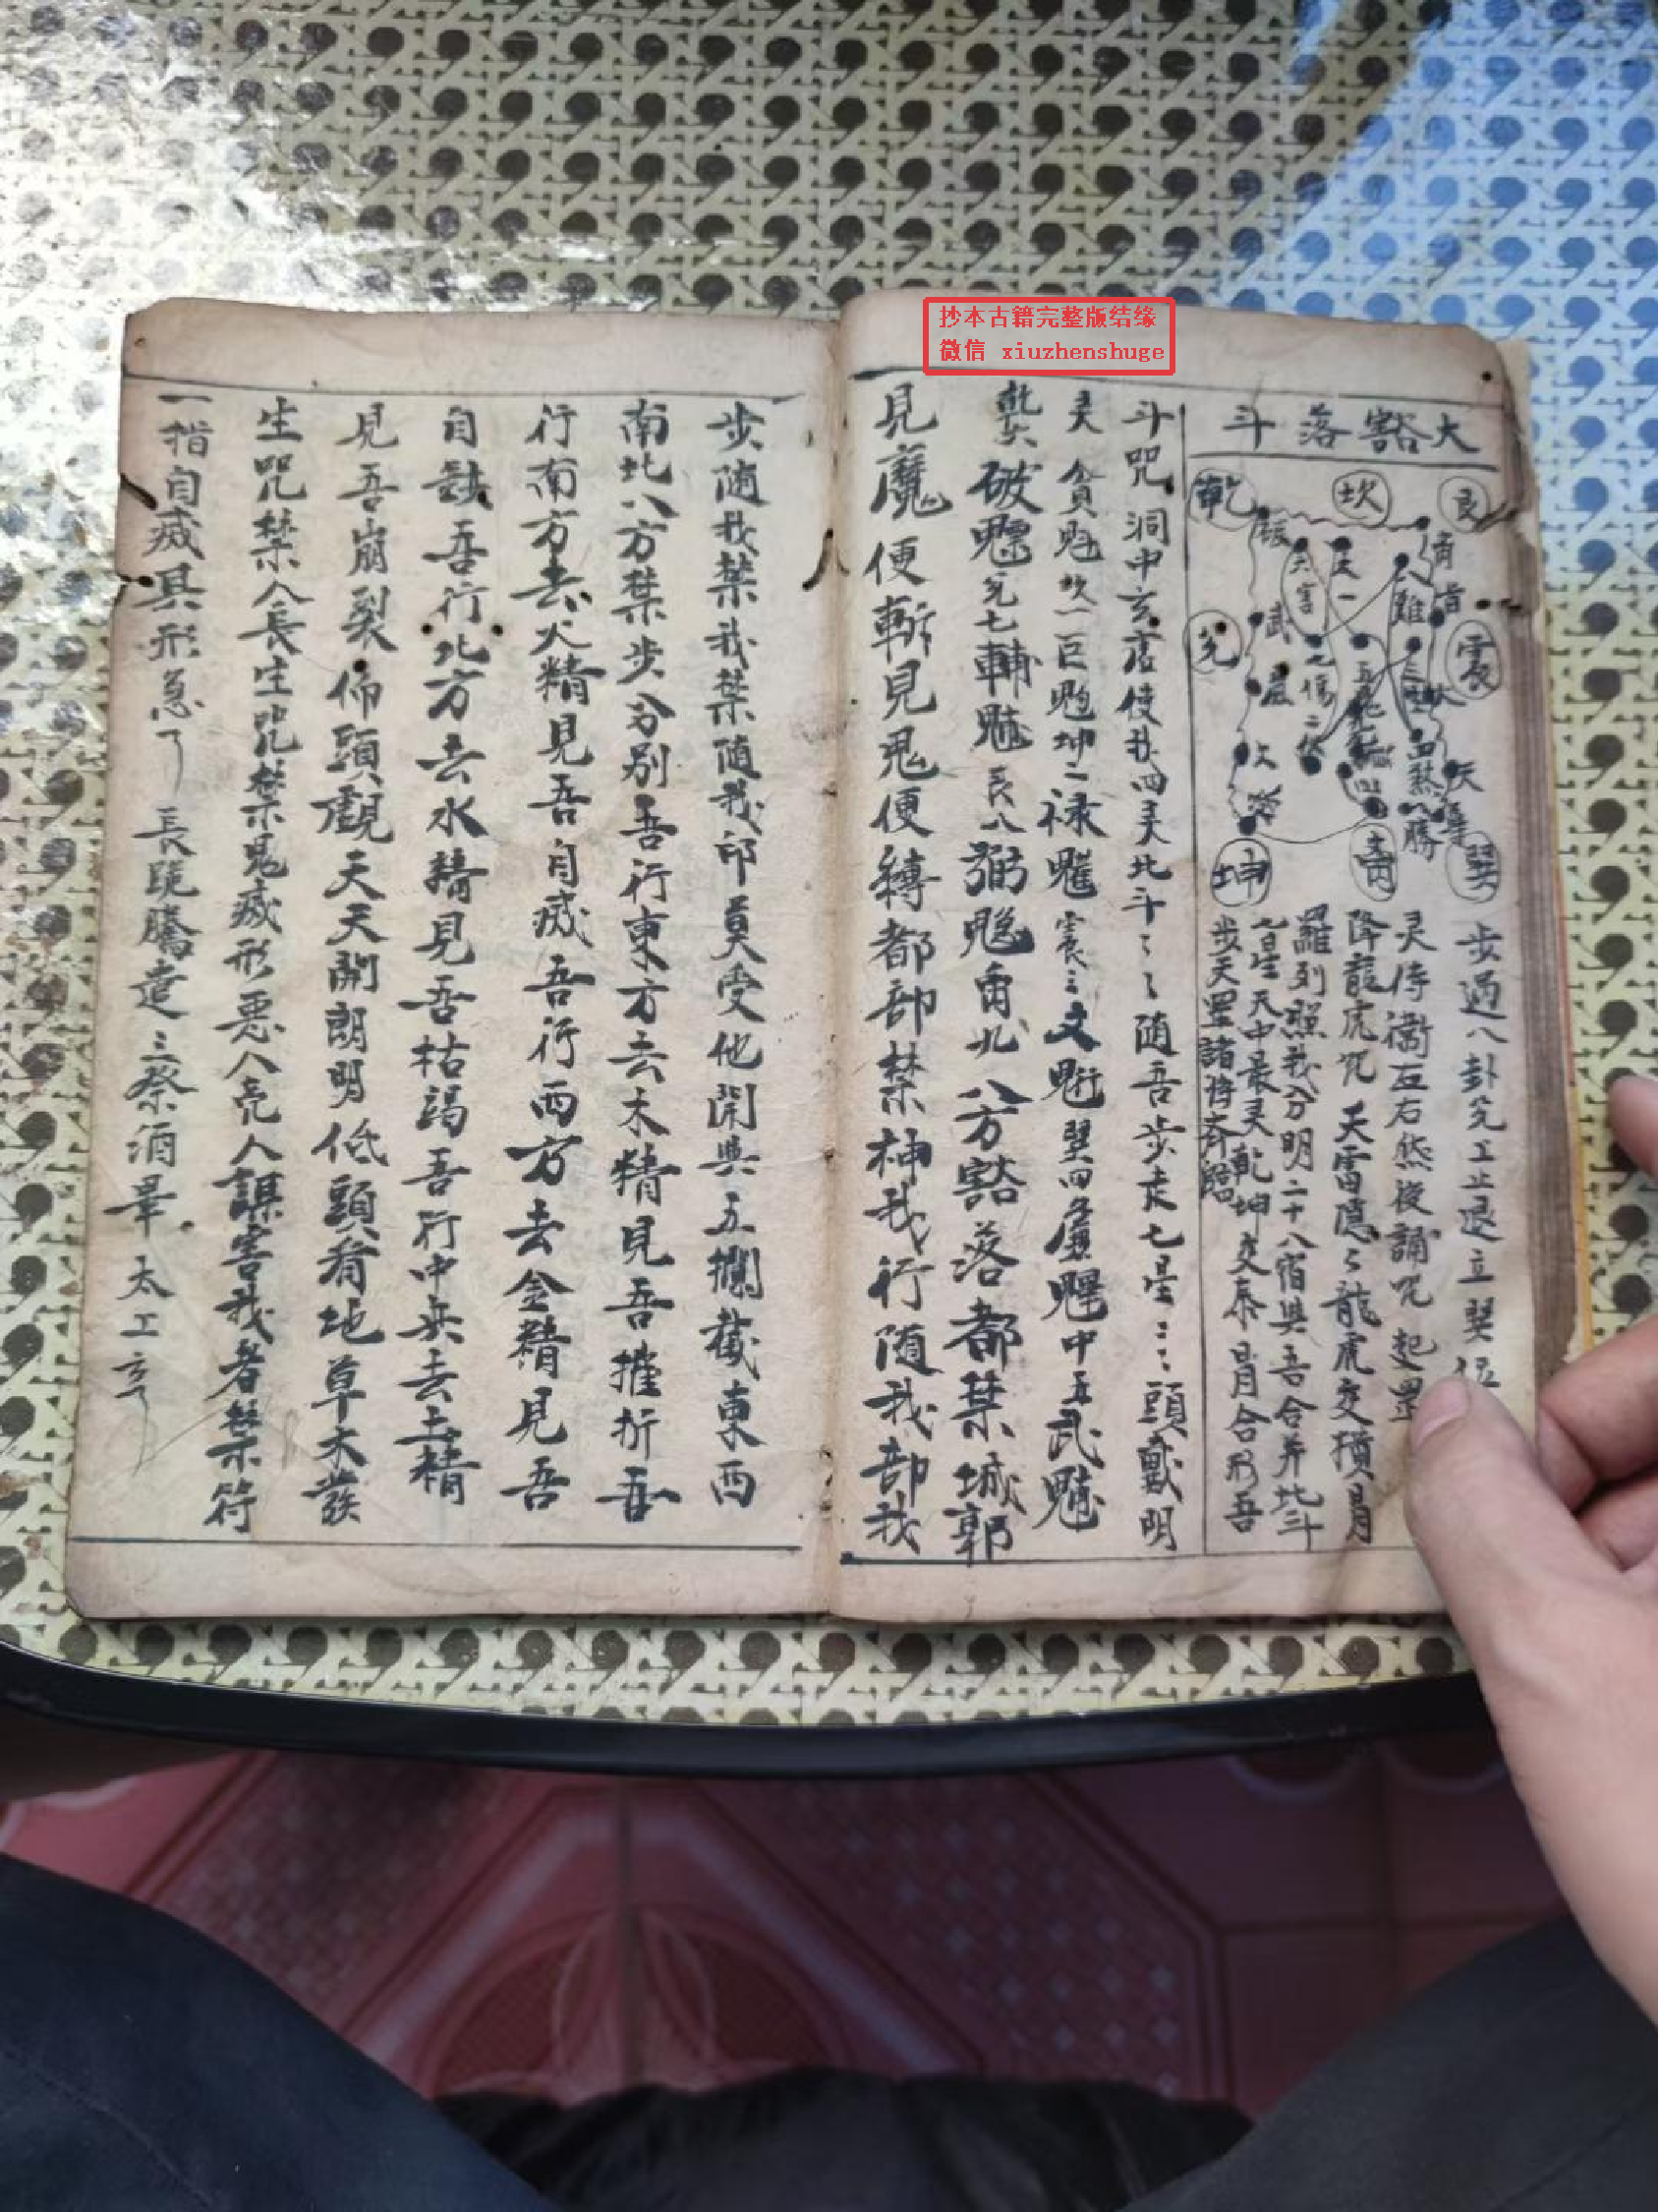 抄本古籍完整版结缘
微信 xiuzhenshuge
大豁落斗
乾
坎
艮
震
巽
离
坤
兑
步過八卦完工止退立巽位
灵侍衛左右然後誦咒 起罡
降龍虎咒 天雷隱々龍虎交横月
羅列照我分明二十八宿與吾合并北斗
七星天中最灵乾坤交泰月合形吾
步天罡諸将斉臨
斗咒 洞中玄虚使我四灵北斗々々随吾步走七星々々頭戴明
灵 貪魁坎一巨魁坤二禄魋震三文魁巽四廉魓中五武魒
乾六破魒兑七輔魑艮八弼魒离九八方豁落都禁城郭
見魔便斬見鬼便縛都部禁神我行随我部我
步随我禁我禁随我印莫受他開與五攔截東西
南北八方禁步分别吾行東方去木精見吾摧折吾
行南方去火精見吾自滅吾行西方去金精見吾
自缺吾行北方去水精見吾枯竭吾行中央去土精
見吾崩裂 佈頭觀天天開朗明低頭看地草木發
生咒禁人長生咒禁鬼滅形惡人亮人謀害我者禁符
一指自滅其形急了 長跪騰壹三祭酒畢 太工亨